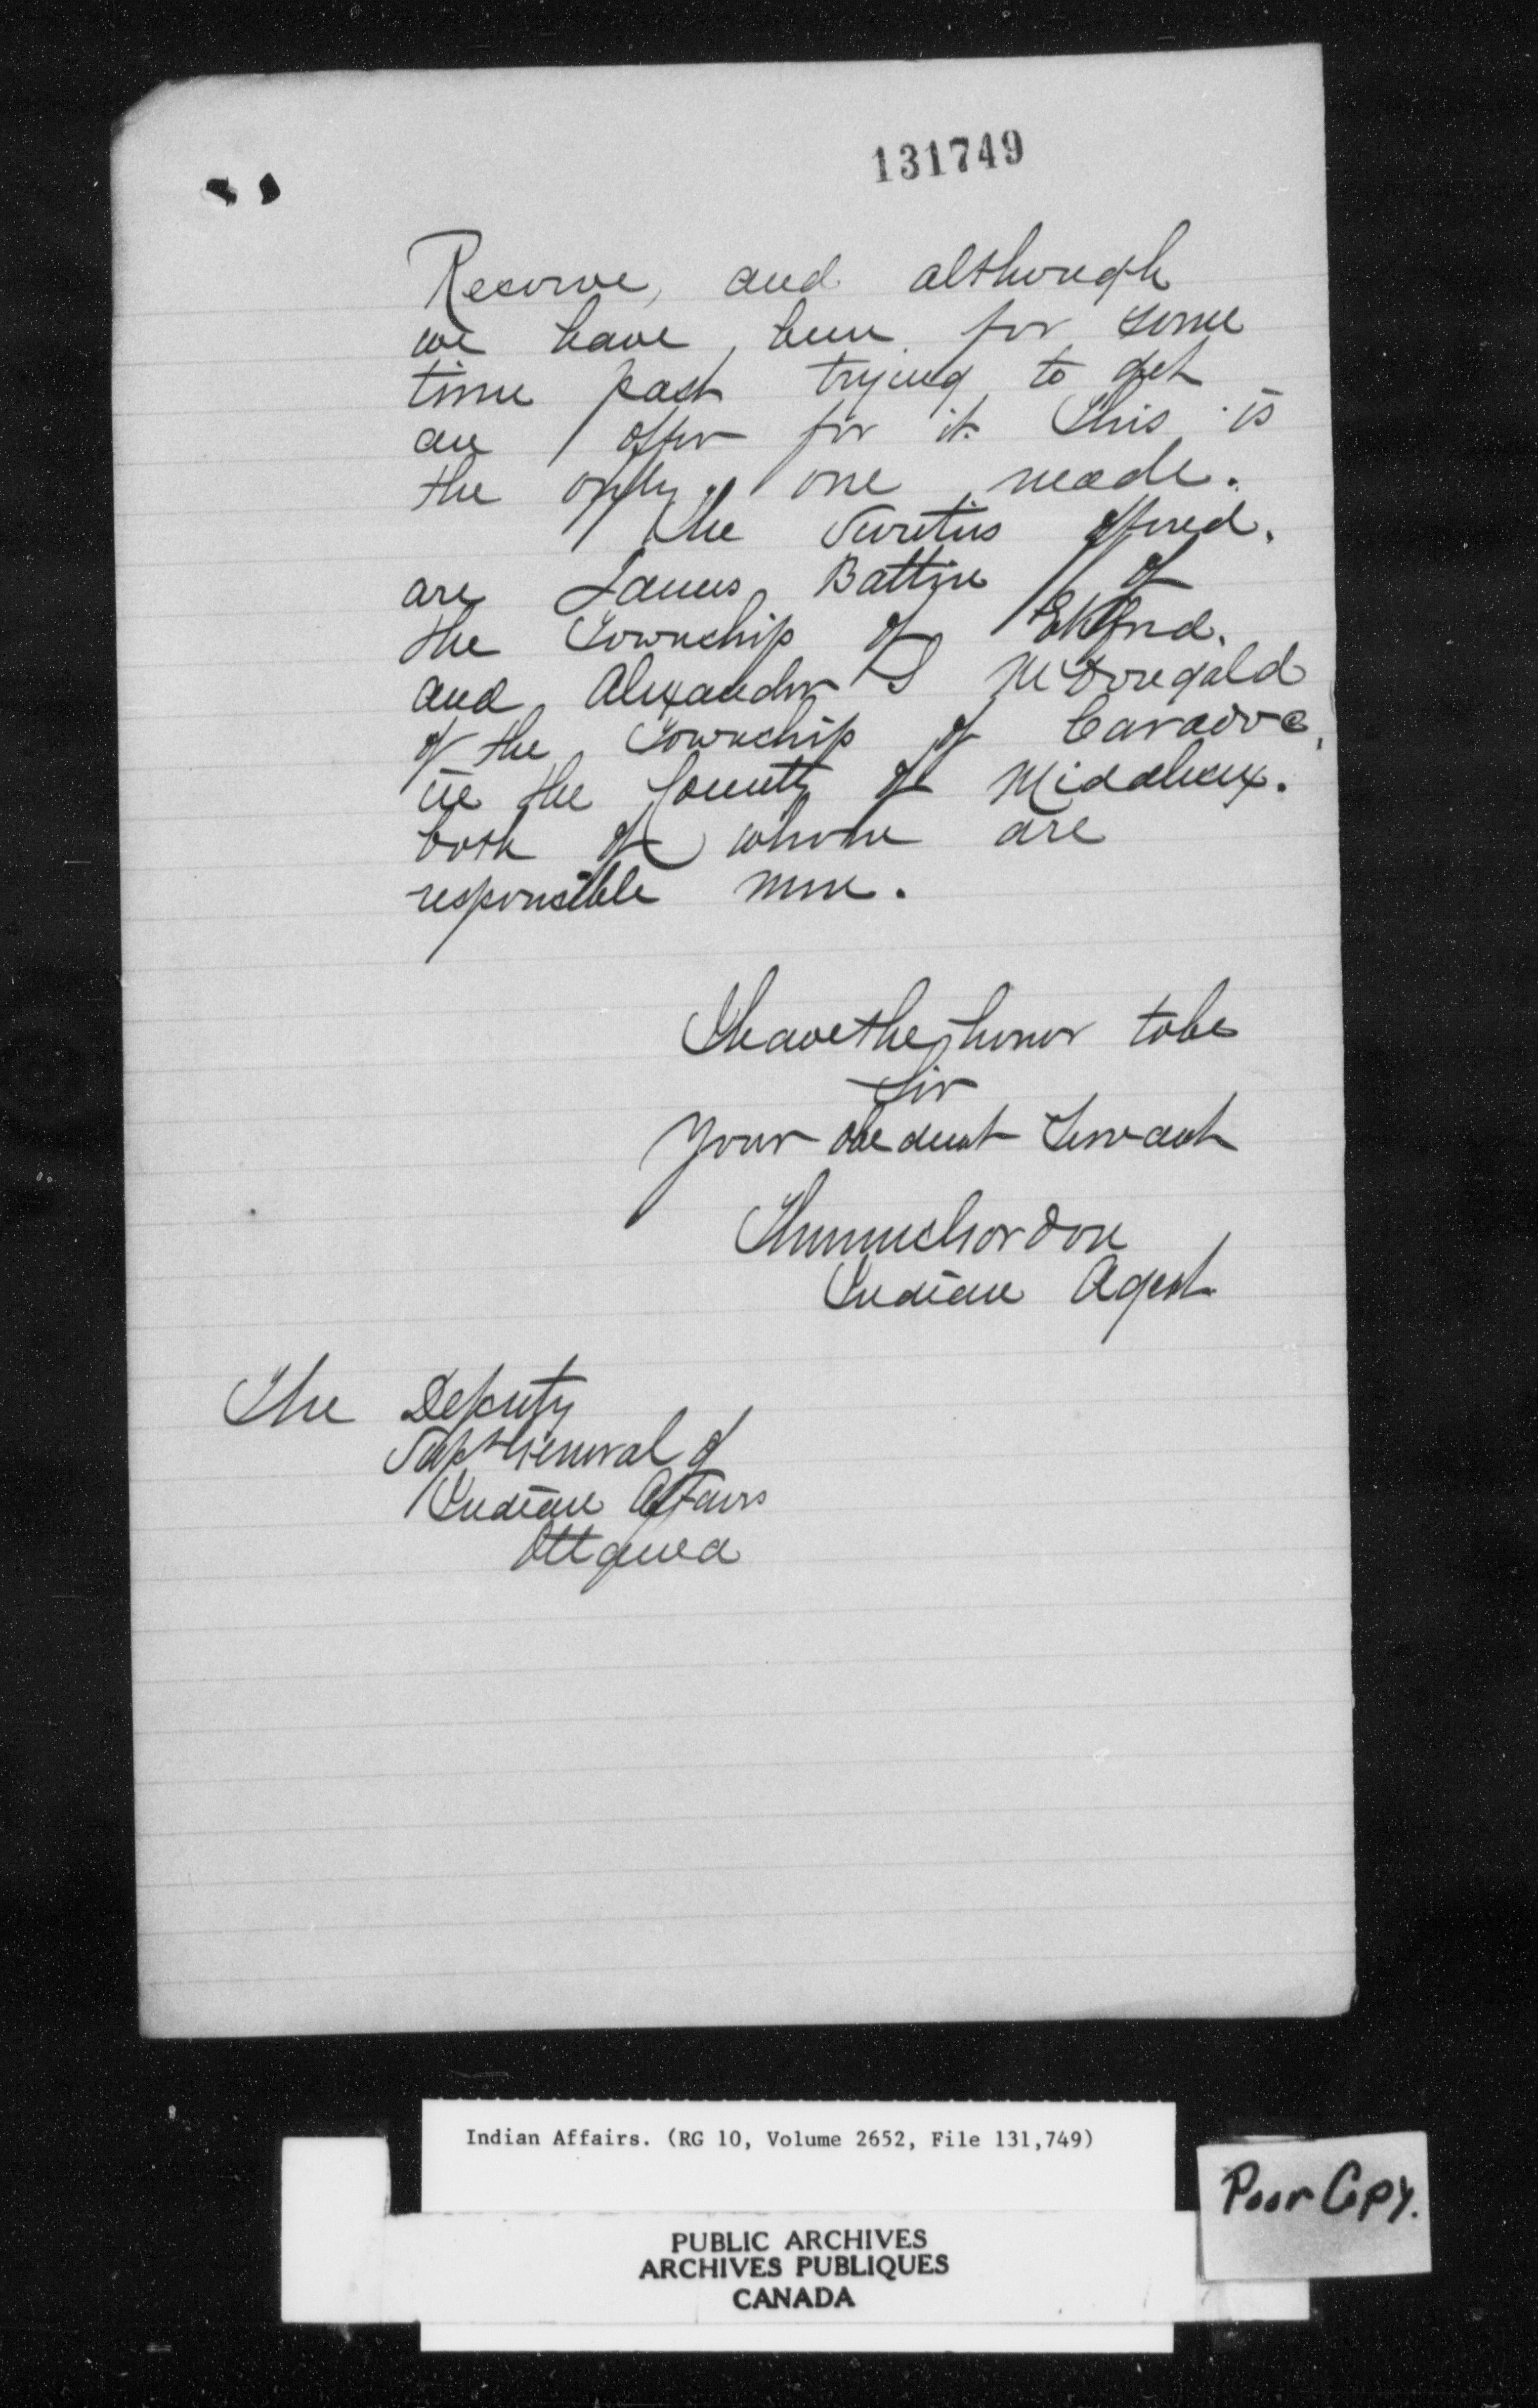 131749
Reserve, and although
we have been for some
time past trying to get
an offer for it this is
the only one made.
The Sureties offered.
are James Battin of
the Township of Ekfrid.
and Alexander S McDougald
of the Township of Caradoc,
in the County of Middlesex.
both of whom are
responsible men.
I have the honor to be
Sir
Your obedient Servant
Gordon
Indian Agent
The Deputy
Supt General of
Indian Affairs
Ottawa
Indian Affairs. (RG 10, Volume 2652, File 131,749)
Poor Copy.
PUBLIC ARCHIVES
ARCHIVES PUBLIQUES
CANADA